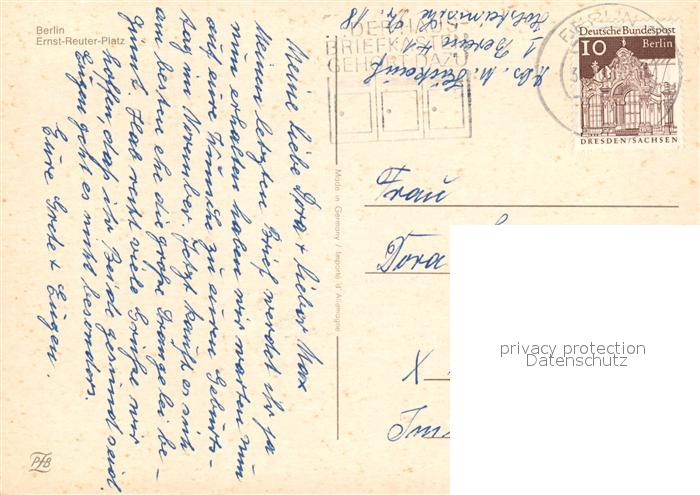 Berlin
Ernst-Reuter-Platz
Meine liebe Dora + lieber Max
Meinen letzten Brief werdet ihr ja
nun erhalten haben wir warten nun
auf eure Wünsche zu euren Geburts-
tag im November. Jetzt kauft es sich
am besten ehe die große Drangelei be-
ginnt. Habt recht viele Grüße wir
hoffen daß ihr Beide gesund seid.
Eugen geht es nicht besonders.
Eure Grete + Eugen.
PfB
Made in Germany / Importé d'Allemagne
Abs. M.
1 Berlin 41
DER HAUS
BRIEFKASTEN
GEHÖRT DAZU
BERLIN
Deutsche Bundespost
10 Berlin
DRESDEN/SACHSEN
Frau
Dora
X
privacy protection
Datenschutz